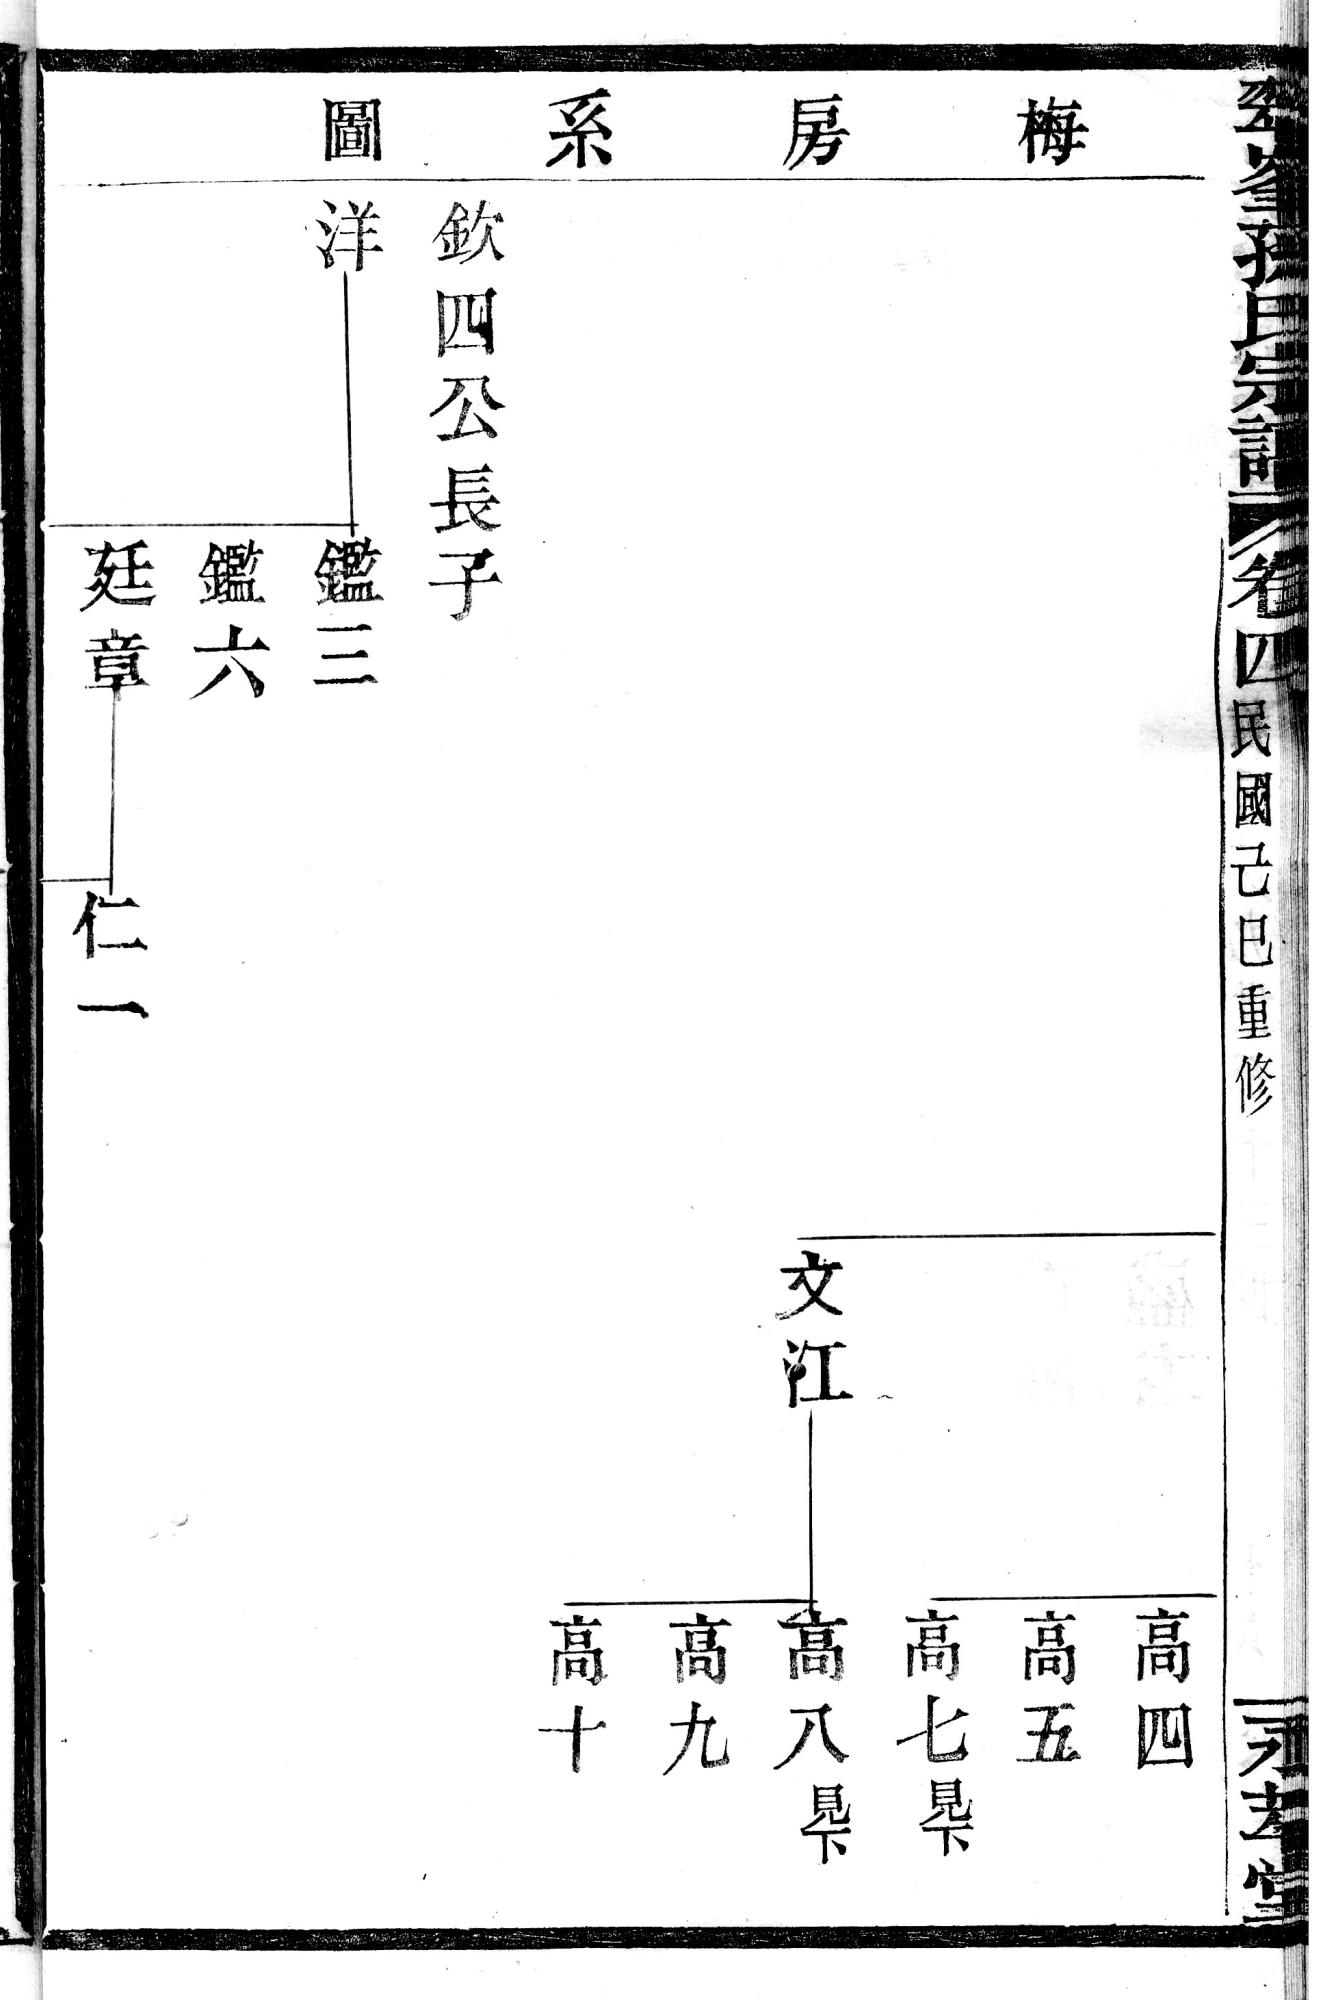 孫氏宗譜
卷四
民國己巳重修
永孝堂
梅房系圖
文江
高四
高五
高七見下
高八見下
高九
高十
欽四公長子
洋
鑑三
鑑六
廷章
仁一